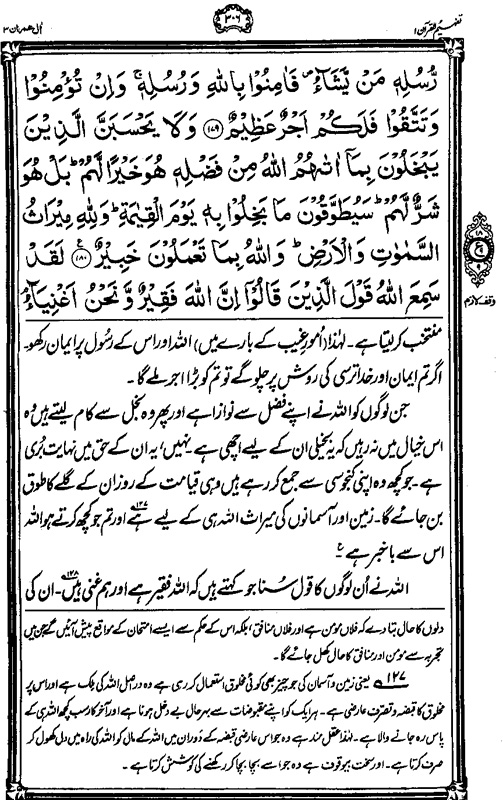 تفہیم القرآن ۱
۳۰۶
آل عمران ۳
رُّسُلِهٖ مَنْ يَّشَآءُ ۪ فَاٰمِنُوْا بِاللّٰهِ وَرُسُلِهٖ ۚ وَاِنْ تُؤْمِنُوْا
وَتَتَّقُوْا فَلَكُمْ اَجْرٌ عَظِيْمٌ ﴿۱۷۹﴾ وَلَا يَحْسَبَنَّ الَّذِيْنَ
يَبْخَلُوْنَ بِمَآ اٰتٰىهُمُ اللّٰهُ مِنْ فَضْلِهٖ هُوَ خَيْرًا لَّهُمْ ؕ بَلْ هُوَ
شَرٌّ لَّهُمْ ؕ سَيُطَوَّقُوْنَ مَا بَخِلُوْا بِهٖ يَوْمَ الْقِيٰمَةِ ؕ وَلِلّٰهِ مِيْرَاثُ
السَّمٰوٰتِ وَالْاَرْضِ ؕ وَاللّٰهُ بِمَا تَعْمَلُوْنَ خَبِيْرٌ ﴿۱۸۰﴾ لَقَدْ
سَمِعَ اللّٰهُ قَوْلَ الَّذِيْنَ قَالُوْٓا اِنَّ اللّٰهَ فَقِيْرٌ وَّنَحْنُ اَغْنِيَآءُ ۘ
۱۸
ع
۹
وقف لازم
منتخب کر لیتا ہے۔ لہٰذا (اُمورِ غیب کے بارے میں) اللہ اور اس کے رسُول پر ایمان رکھو۔
اگر تم ایمان اور خدا ترسی کی روش پر چلو گے تو تم کو بڑا اجر ملے گا۔
جن لوگوں کو اللہ نے اپنے فضل سے نوازا ہے اور پھر وہ بخل سے کام لیتے ہیں وُہ
اس خیال میں نہ رہیں کہ یہ بخیلی ان کے لیے اچھی ہے نہیں، یہ ان کے حق میں نہایت بُری
ہے۔ جو کچھ وہ اپنی کنجوسی سے جمع کر رہے ہیں وہی قیامت کے روز ان کے گلے کا طوق
بن جائے گا۔ زمین اور آسمانوں کی میراث اللہ ہی کے لیے ہے۱۲۷ اور تم جو کچھ کرتے ہو اللہ
اس سے باخبر ہے ؏
اللہ نے اُن لوگوں کا قول سُنا جو کہتے ہیں کہ اللہ فقیر ہے اور ہم غنی ہیں۱۲۸۔ ان کی
دلوں کا حال بتا دے کہ فلاں مومن ہے اور فلاں منافق، بلکہ اس کے حکم سے ایسے امتحان کے مواقع پیش آئیں گے جن میں
تجربہ سے مومن اور منافق کا حال کھل جائے گا۔
۱۲۷ یعنی زمین و آسمان کی جو چیز بھی کوئی مخلوق استعمال کر رہی ہے وہ دراصل اللہ کی مِلک ہے اور اس پر
مخلوق کا قبضہ و تصرف عارضی ہے۔ ہر ایک کو اپنے مقبوضات سے بہرحال بے دخل ہونا ہے اور آخرکار سب کچھ اللہ ہی کے
پاس رہ جانے والا ہے۔ لہٰذا عقل مند ہے وہ جو اس عارضی قبضہ کے دَوران میں اللہ کے مال کو اللہ کی راہ میں دل کھول کر
صرف کرتا ہے۔ اور سخت بیوقوف ہے وہ جو اسے بچا بچا کر رکھنے کی کوشش کرتا ہے۔